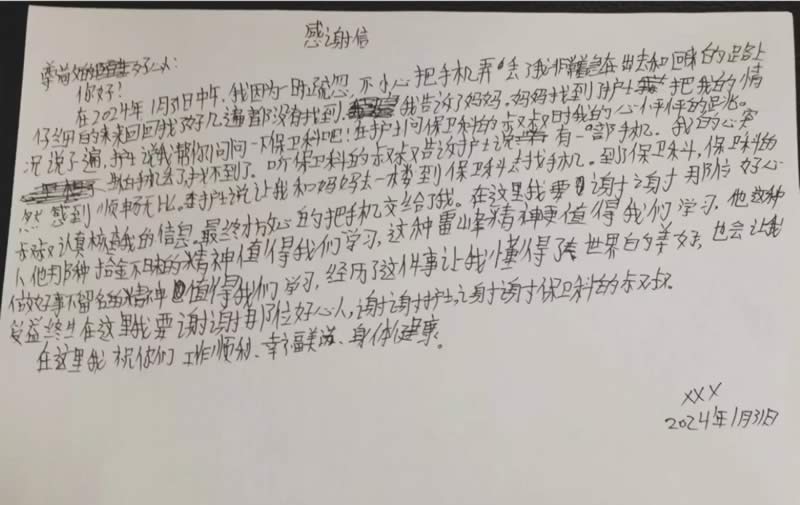 感谢信
尊敬的好心人:
你好!
在2024年1月31日中午,我因为一时疏忽,不小心把手机弄丢了我非常着急在出去和回来的路上
仔细的来来回回找好几遍都没有找到。我告诉了妈妈。妈妈找到了护士把我的情
况说了一遍,护士说我帮你们问问一下保卫科吧!在护士问保卫科的叔叔时我的心怦怦的跳
手机丢了找不到了。听保卫科的叔叔告诉护士说有一部手机。我的心突
然感到顺畅无比。护士说让我和妈妈去一楼到保卫科去找手机。到了保卫科,保卫科的
叔叔认真核查我的信息。最终才放心的把手机交给了我。在这里我要谢谢那位好心
人他那种拾金不昧的精神值得我们学习,这种雷锋精神更值得我们学习。他这种
做好事不留名的精神值得我们学习,经历了这件事让我懂得了世界的美好,也会让我
受益终生在这里我要谢谢那位好心人,谢谢护士,谢谢保卫科的叔叔。
在这里我祝你们工作顺利、幸福美满、身体健康。
XXX
2024年1月31日